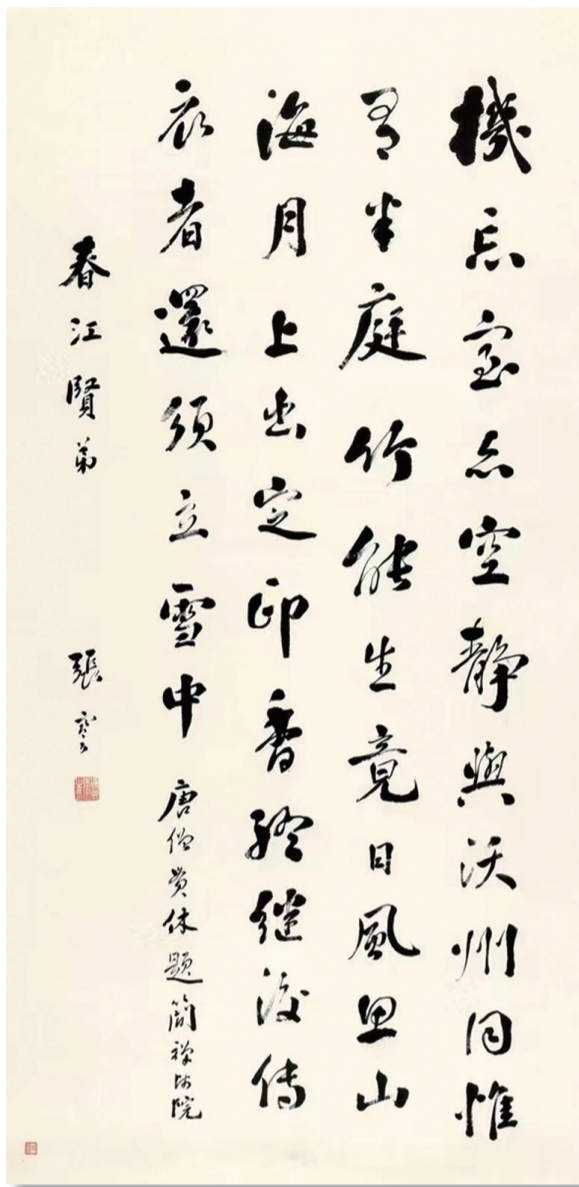 機忘室亦空靜與沃州同惟
有半庭竹能生竟日風思山
海月上出定印香終繼後傳
衣者還須立雪中 唐僧貫休題簡禪師院
春江賢弟 張謇